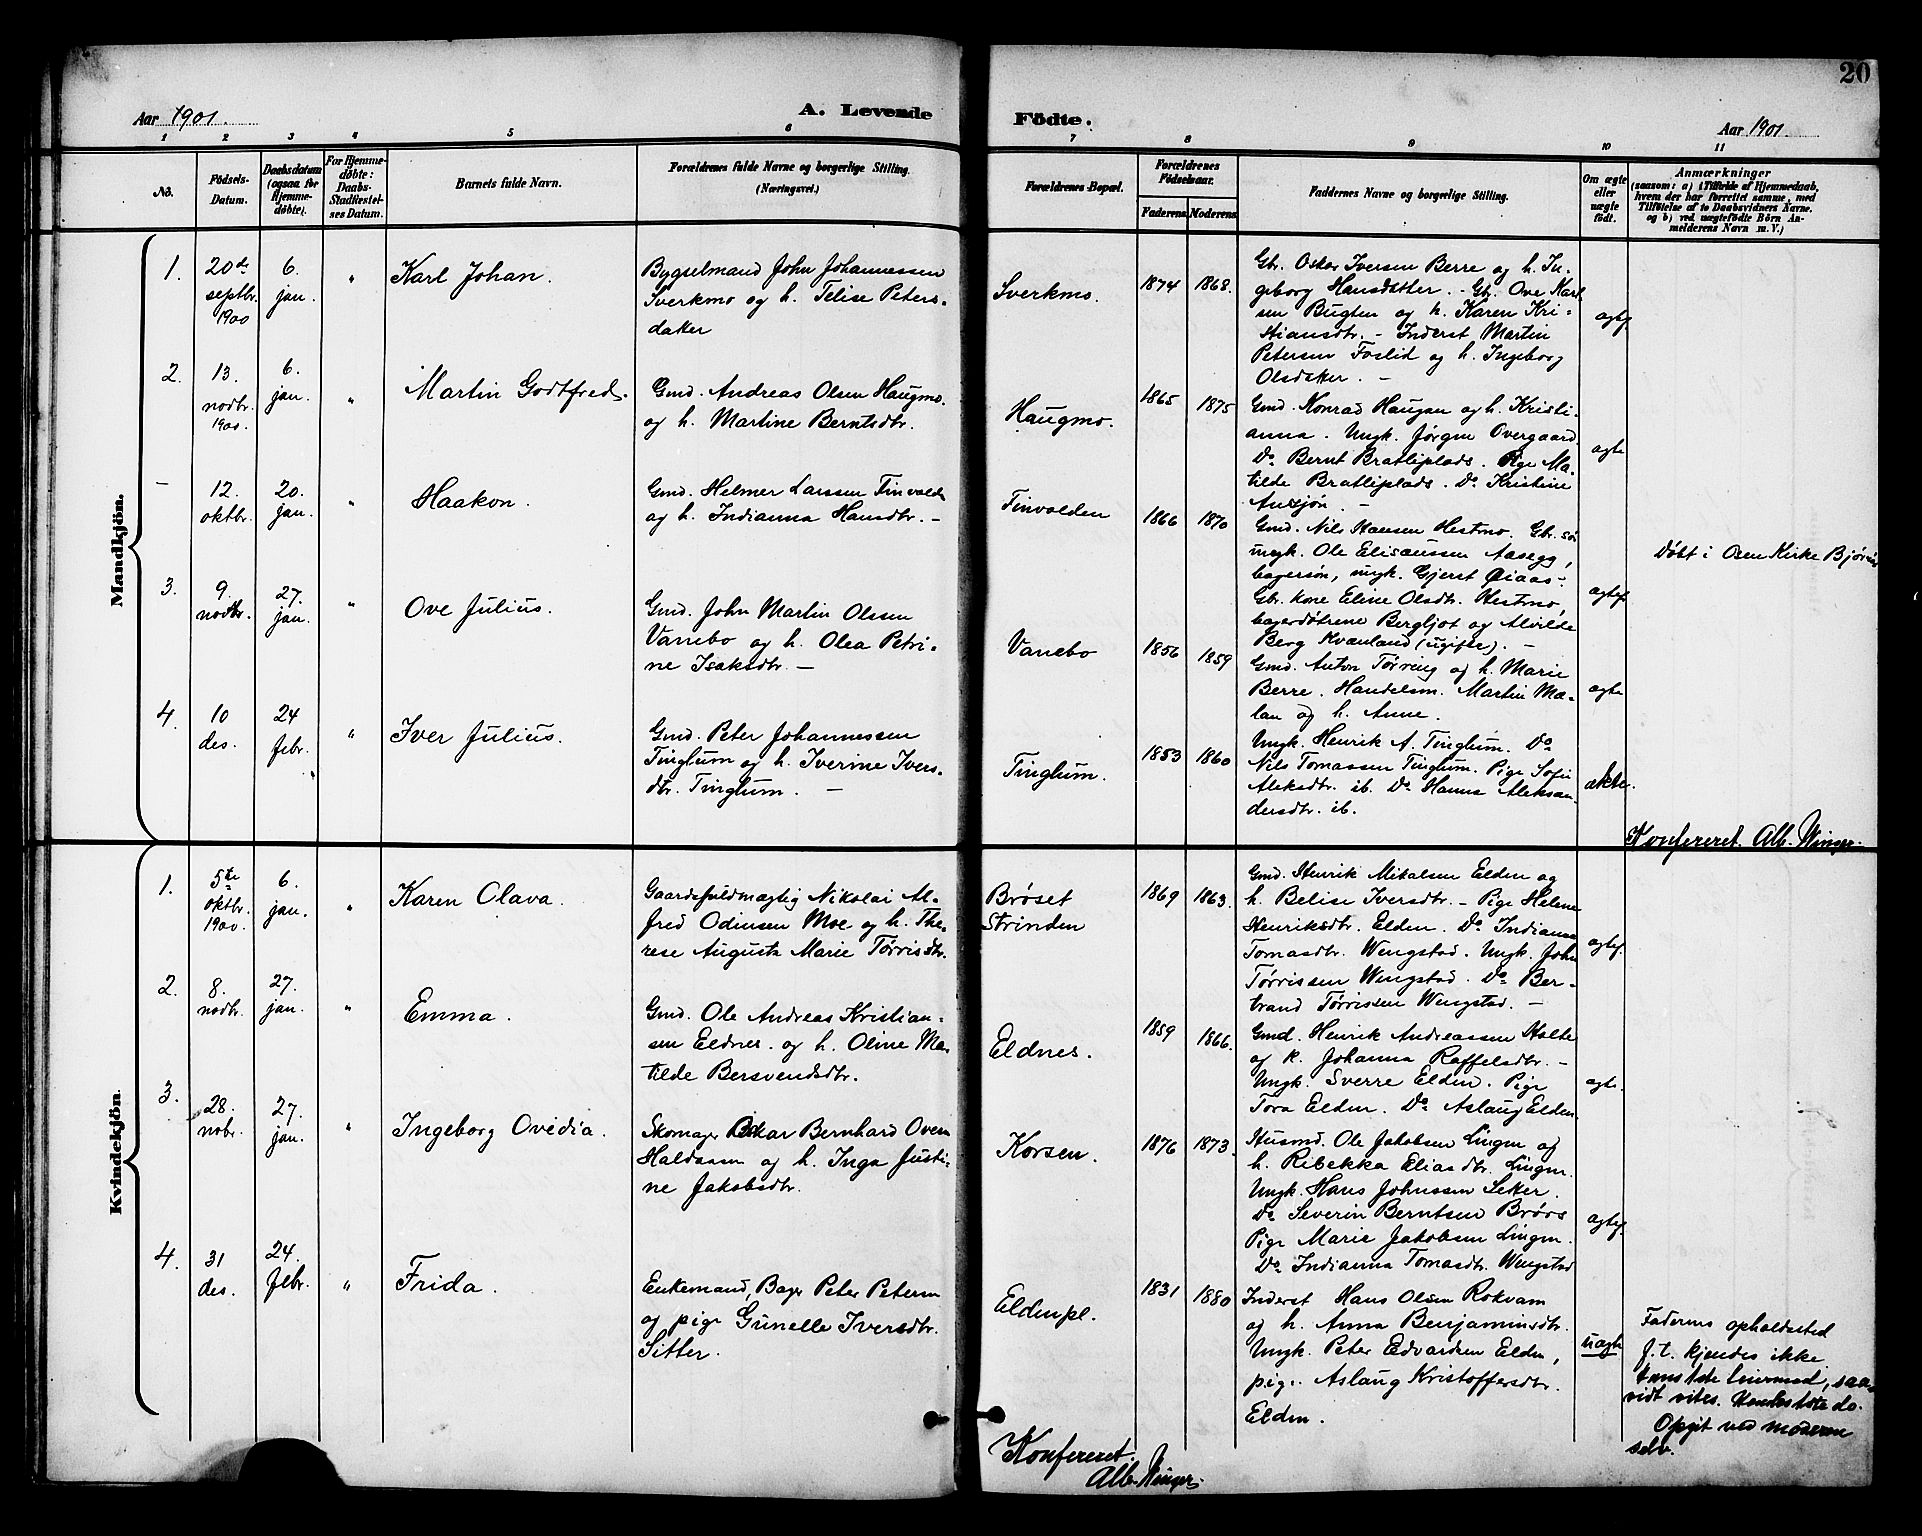 20
Aar 1901.
A. Levende
Födte.
Aar 1901.
1 2 3 4 5 6 7 8 9 10 11
No.
Födsels-
Datum.
Daabsdatum
(ogsaa for
Hjemme-
døbte).
For Hjemme-
døbte:
Daabs-
Stadfæstel-
ses Datum.
Barnets fulde Navn.
Forældrenes fulde Navne og borgerlige Stilling.
(Næringsvei.)
Forældrenes Bopæl.
Forældrenes
Fødselsaar.
Faderens Moderens
Faddernes Navne og borgerlige Stilling.
Om ægte
eller
uægte
født.
Anmærkninger
(saasom: a) i Tilfælde af Hjemmedaab,
hvem der har forrettet samme, med
Tilføielse af to Daabsvidners Navne,
og b) ved uægtefødte Børn An-
melderens Navn m. V.)
Mandkjön.
1.
20de
septbr.
1900
6.
jan.
"
Karl Johan.
Bygselmand John Johannessen
Sverkmo og h. Telise Peters-
datter
Sverkmo.
1874
1868.
Gbr. Oskar Iversen Berre og h. In-
geborg Hansdatter. - Gb. Ove Karl
sen Bugten og h. Karen Kri-
stiansdtr. - Inderst Martin
Petersen Foslid og h. Ingeborg
Olsdatter. -
ægtef.
2.
13.
novbr.
1900.
6.
jan.
"
Martin Godtfred.
Gmd. Andreas Olsen Haugmo.
og h. Martine Berntsdtr.
Haugmo.
1865
1875
Gmd. Konrad Haugan og h. Kristi-
anna. Ungk. Jørgen Overgaard
Do. Bernt Bratliplads. Pige Ma-
tilde Bratliplads. Do. Kristine
Ausjøn. -
ægte
-
12.
oktbr.
20.
jan.
"
Haakon.
Gmd. Helmer Larssen Tinvolden
og h. Indianna Hansdtr. -
Tinvolden
1866
1870
Gmd. Nils Hansen Hestmo. Gbr. søn
ungk. Ole Elisæussen Aasegg,
bagersøn, ungk. Gjerst Øiaas-
Gbr. kone Eline Olsdtr. Hestmo,
bagerdøtrene Bergljot og Alvilde
Berg Kvænland (ugifte). -
ægtef.
Døbt i Osen Kirke Bjørnør
3.
9.
novbr.
27.
jan.
"
Ove Julius.
Gmd. John Martin Olssen
Vanebo og h. Olea Petri-
ne Isaksdtr. -
Vanebo
1856
1859
Gmd. Anton Tørring og h. Marie
Berre. Handelsm. Martin Mæ-
lan og h. Anne.
ægte
4.
10
des.
24
febr.
"
Iver Julius.
Gmd. Peter Johannessen
Tinglum og h. Iverine Ivers-
dtr. Tinglum. -
Tinglum.
1853
1860
Ungk. Henrik A. Tinglum. Do
Nils Tomassen Tinglum. Pige Sofie
Aleksdtr. ib. Do. Hanna Aleksan-
dersdtr. ib.
ækte.
Konfereret. Alb. Winger.
Kvindekjön.
1.
5te
oktbr.
1900.
6.
jan.
"
Karen Olava.
Gaardsfuldmægtig Nikolai Al-
fred Odinsen Moe og h. The-
rese Augusta Marie Tørrisdtr.
Brøset
Strinden
1869
1863.
Gmd. Henrik Mikalsen Elden og
h. Belise Iversdtr. - Pige Helene
Henriksdtr. Elden. Do. Indianna
Tomasdtr. Wengstad. Ungk. John
Tørrissen Wengstad. Do Ber-
trand Tørrissen Wengstad. -
ægtef.
2.
8.
novbr.
27.
jan.
"
Emma.
Gmd. Ole Andreas Kristian-
sen Eldnes. og h. Oline Ma-
tilde Bersvendsdtr.
Eldnes.
1859
1866.
Gmd. Henrik Andreassen Holte
og k. Johanna Raffelsdtr. -
Ungk. Sverre Elden. Pige
Tora Elden. Do. Aslaug Elden.
ægte.
3.
28.
nobr.
27.
jan.
"
Ingeborg Ovidia.
Skomager Oskar Bernhard Oven
Haldsaen og h. Inga Justi-
ne Jakobsdtr.
Korsen.
1876
1873.
Husmd. Ole Jakobsen Lingen og
h. Ribekka Eliasdtr. Lingen.
Ungk. Hans Johnssen Seker.
Do. Severin Berntsen Brørs
Pige Marie Jakobsen Lingen.
Do. Indianna Tomasdtr. Wengstad
ægtef.
4.
31
des.
24.
febr.
"
Frida.
Enkemand, Bager Peter Petersen
og pige Gunelle Iversdtr.
Sitter.
Eldenpl.
1831
1880
Inderst Hans Olsen Rokvam
og h. Anna Benjaminsdtr.
Ungk. Peter Edvardsen Elden,
pige Aslaug Kristoffersdtr.
Elden.
uægte
Faderens opholdssted
f.t. kjendes ikke
hans 1ste leiermaal, saa-
vidt vites. Hendes 1ste do.
Opgit ved moderen
selv.
Konfereret.
Alb. Winger.